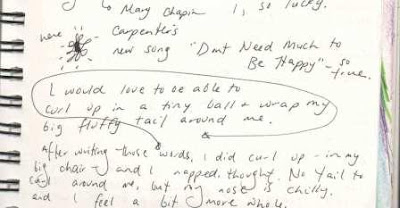 to Mary Chapin I, so lucky.
here Carpenter's
new song "Dont Need Much to
Be Happy" - so
true.
I would love to be able to
curl up in a tiny ball & wrap my
big fluffy tail around me.
After writing those words, I did curl up - in my
big chair - and I napped. thought. No tail to
curl around me, but my nose is chilly.
and I feel a bit more whole.